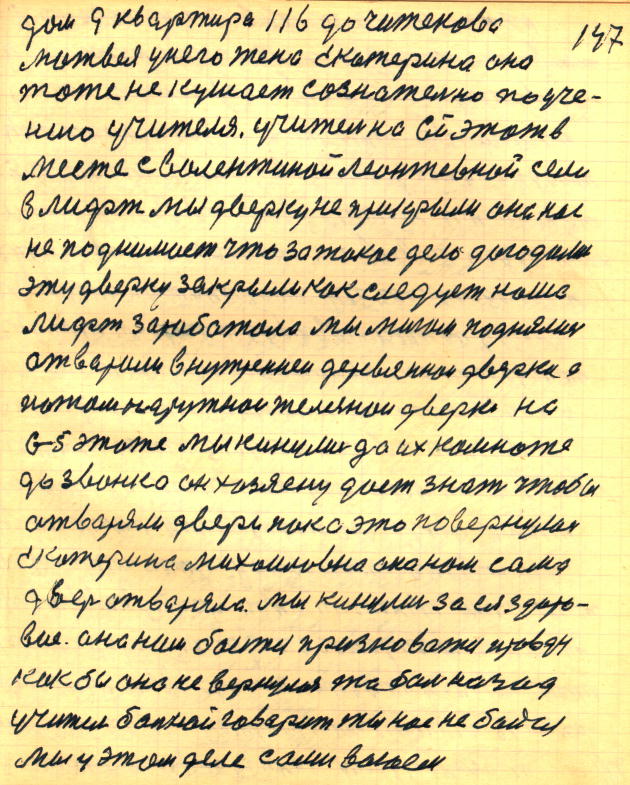 147
дом 9 квартира 116 до чижекова
матвея унего жена Екатерина она
тоже не кушает сознателно поуче-
нию учителя. учител на 6й этож в
месте с валентиной леонтевной сели
в лифт мы дверку не прикрыли она нас
не поднимает что за такое дело догодали
эту дверку закрыли как следует наша
лифт заработала мы мигом поднялис
отварили внутренней деревянной дверки а
потом наружной железной дверки на
6-5 этоже мы кинулис до их комноте
до звонка он хозяену дает знат чтобы
отваряли двери пока это повернулас
Екатерина михаиловна она нам сама
двер отваряла. мы кинулис за ея здоро-
вие. она нам боится признаватся правды
как бы она не вернулася та бал назад
учител говарит ты нас не байся
мы у этом деле сами